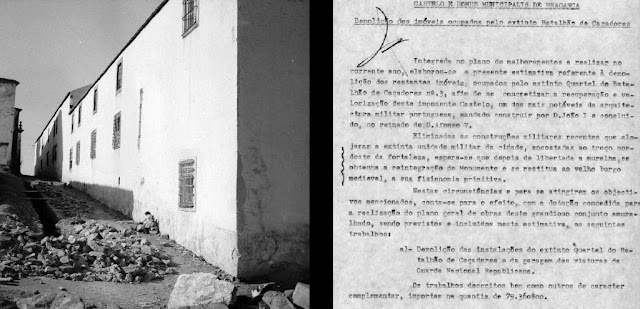 CASTELO E DOMUS MUNICIPALIS DE BRAGANÇA
Demolição dos imóveis ocupados pelo extinto Batalhão de Caçadores
Integrada no plano de melhoramentos a realizar no
corrente ano, elaborou-se a presente estimativa referente à demo-
lição dos restantes imóveis, ocupados pelo extinto Quartel do Bata-
lhão de Caçadores nº.3, afim de se concretizar a recuperação e va-
lorização deste imponente Castelo, um dos mais notáveis da arquitec-
tura militar portuguesa, mandado construir por D.João I e conclui-
do, no reinado de D.Afonso V.
Eliminadas as construções militares recentes que alo-
jaram a extinta unidade militar da cidade, encostadas ao troço nor-
deste da fortaleza, espera-se que depois de libertada a muralha, se
obtenha a reintegração do Monumento e se restitua ao velho burgo
medieval, a sua fisionomia primitiva.
Nestas circunstâncias e para se atingirem os objecti-
vos mencionados, conta-se para o efeito, com a dotação concedida para
a realização do plano geral de obras deste grandioso conjunto amura-
lhado, sendo previstos e incluidos nesta estimativa, os seguintes
trabalhos:
a)- Demolição das instalações do extinto Quartel do Ba-
talhão de Caçadores e da garagem das viaturas da
Guarda Nacional Republicana.
Os trabalhos descritos bem como outros de caracter
complementar, importam na quantia de 79.360$00.